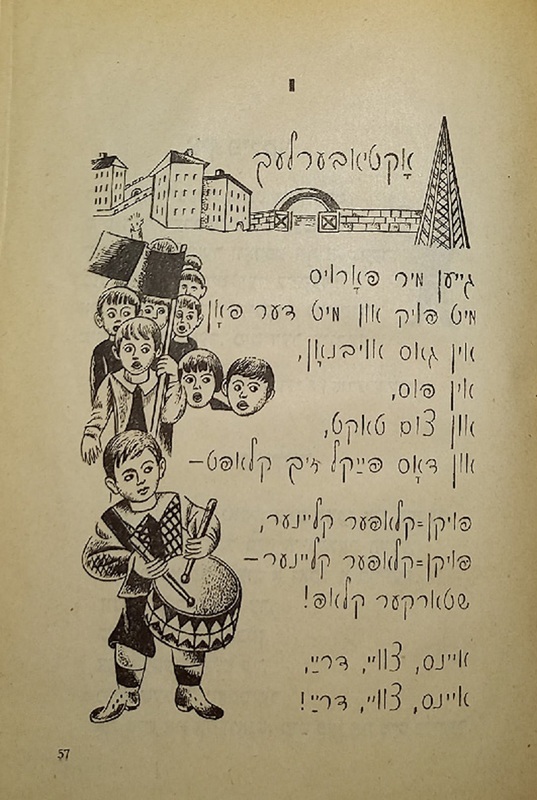 I
אָקטיאבערלעך
גייען מיר פאָרויס
מיט פויק און מיט דער פאָן
אין גאס אויבנאָן,
אין פוס,
און צום טאקט,
און דאָס פײַקל זיך קלאפט—
פויקן=קלאפער קליינער,
פויקן=קלאפער קליינער—
שטארקער קלאפ!
איינס, צוויי, דרײַ,
איינס, צוויי, דרײַ!
57